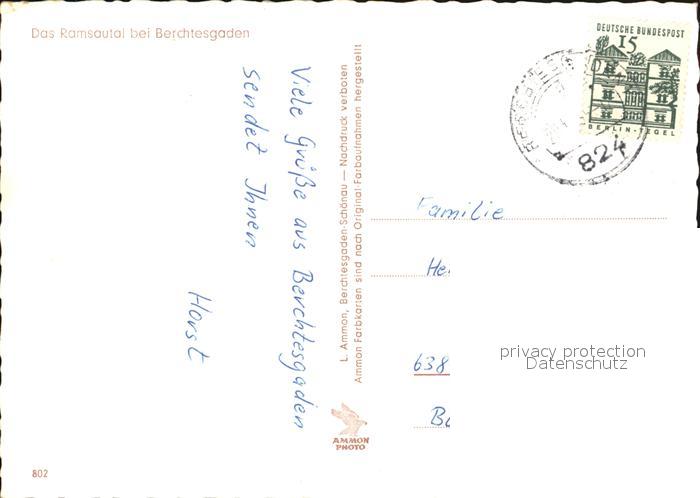 Das Ramsautal bei Berchtesgaden
Viele Grüße aus Berchtesgaden
sendet Ihnen
Horst
L. Ammon, Berchtesgaden-Schönau — Nachdruck verboten
Ammon Farbkarten sind nach Original-Farbaufnahmen hergestellt
AMMON
PHOTO
802
DEUTSCHE BUNDESPOST
15
BERLIN-TEGEL
824
Familie
He
638
privacy protection
Datenschutz